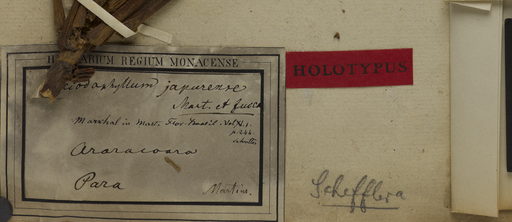 HERBARIUM REGIUM MONACENSE
Sciodaphyllum japurense
Mart. et Zucc
Marchal in Mart. Flor. Brasil. Vol. XI. 1.
p. 244.
Araracoara
Para
Martius.
HOLOTYPUS
Schefflera